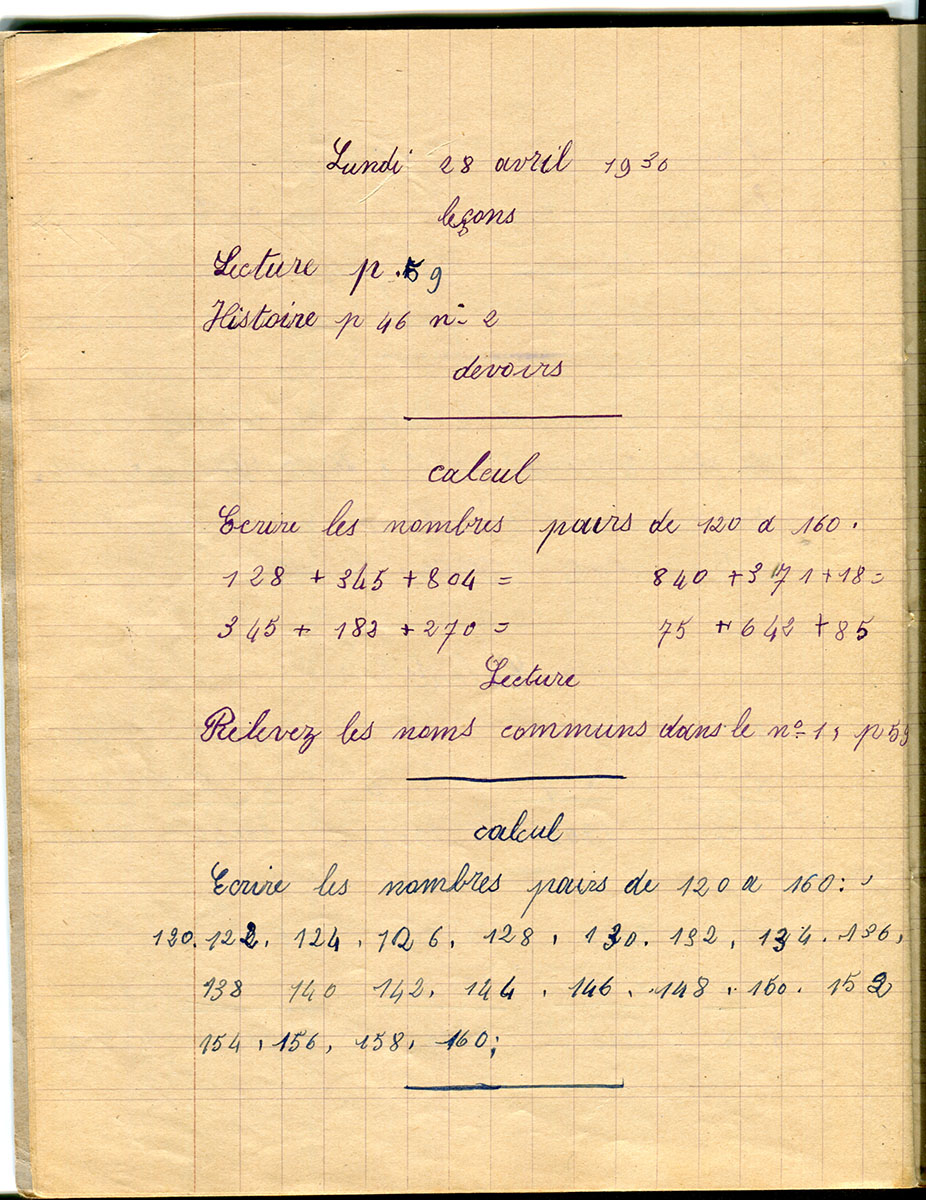 Lundi 28 avril 1930
leçons
Lecture p. 59
Histoire p 46 n° 2
devoirs
calcul
Ecrire les nombres pairs de 120 a 160.
128 + 345 + 804 = 840 + 371 + 18 =
345 + 182 + 270 = 75 + 642 + 85
Lecture
Relevez les noms communs dans le n° 1, p 59
calcul
Ecrire les nombres pairs de 120 a 160:
120. 122. 124. 126. 128. 130. 132. 134. 136.
138 140 142. 144. 146. 148. 150. 152
154. 156. 158. 160;